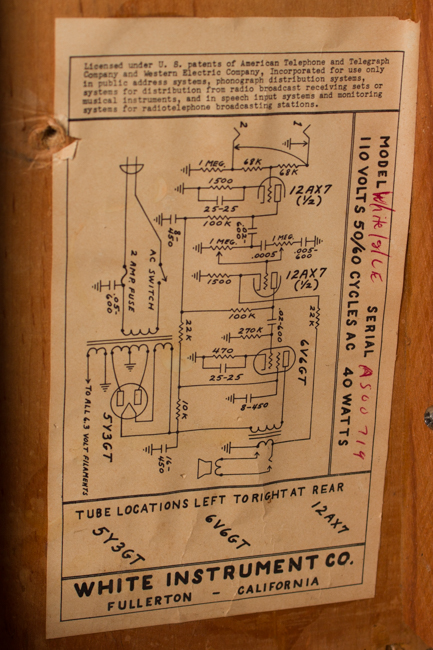 Licensed under U. S. patents of American Telephone and Telegraph
Company and Western Electric Company, Incorporated for use only
in public address systems, phonograph distribution systems,
systems for distribution from radio broadcast receiving sets or
musical instruments, and in speech input systems and monitoring
systems for radiotelephone broadcasting stations.
MODEL White/StLE SERIAL AS00719
110 VOLTS 50/60 CYCLES AC 40 WATTS
2
1
1 MEG.
68K
68K
1500
25-25
12AX7
(½)
100K
8-450
.02-600
1 MEG.
.0005
1 MEG.
.005-600
1500
12AX7
(½)
AC SWITCH
2 AMP. FUSE
.05-600
22K
100K
270K
.02-600
22K
470
25-25
6V6GT
8-450
10K
16-450
5Y3GT
TO ALL 6.3 VOLT FILAMENTS
TUBE LOCATIONS LEFT TO RIGHT AT REAR
5Y3GT 6V6GT 12AX7
WHITE INSTRUMENT CO.
FULLERTON - CALIFORNIA